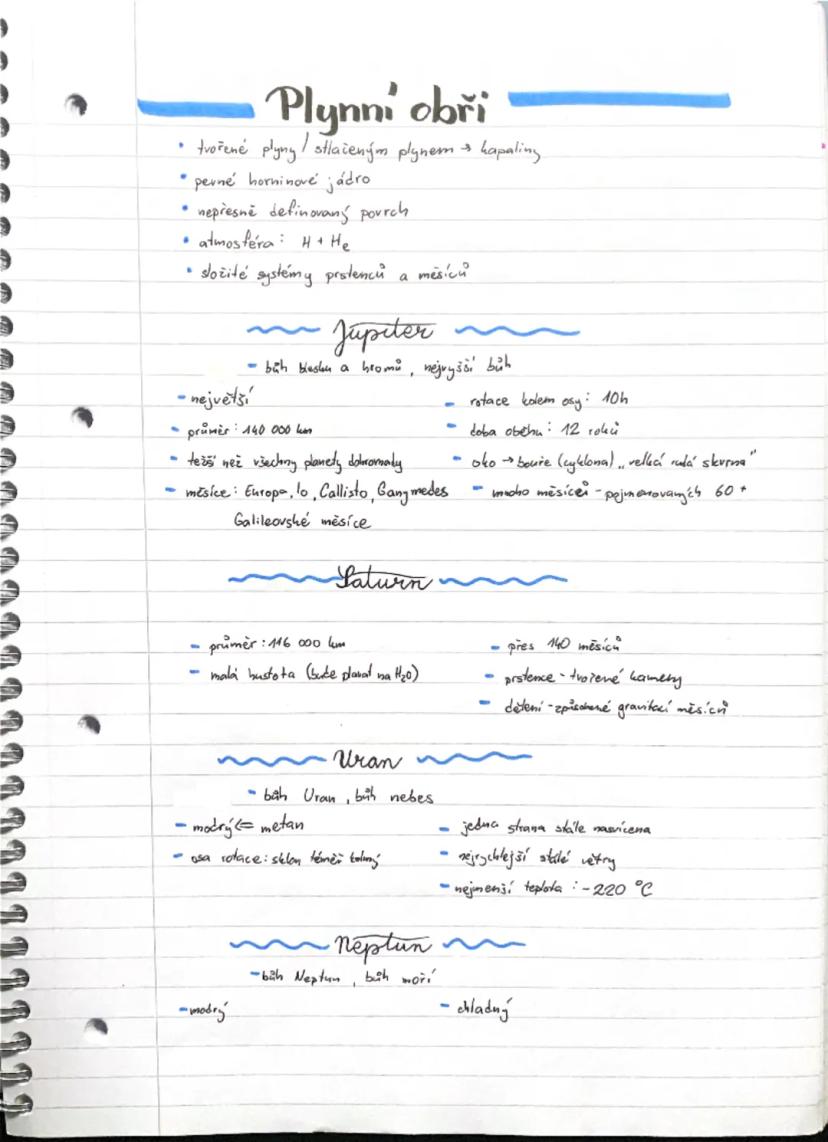 Plynní obři
• tvořené plyny / stlačeným plynem → kapaliny
• pevné horninové jádro
• nepřesně definovaný povrch
• atmosféra: H + He
• složité systémy prstenců a měsíců
Jupiter
- bůh blesku a hromů, nejvyšší bůh
- největší
- rotace kolem osy: 10h
- průměr: 140 000 km
- doba oběhu: 12 roků
- težší než všechny planety dohromady
- oko → bouře (cyklona) „velká rudá skvrna"
- měsíce: Europa, Io, Callisto, Ganymedes
- mnoho měsíců - pojmenovaných 60 +
Galileovské měsíce
Saturn
- průměr: 116 000 km
- přes 140 měsíců
- malá hustota (bude plavat na H₂O)
- prstence - tvořené kameny
- dělení - způsobené gravitací měsíců
Uran
- bůh Uran, bůh nebes
- modrý <= metan
- jedna strana stále nasvícena
- osa rotace: sklon téměř kolmý
- nejrychlejší stálé větry
- nejmenší teplota: -220 °C
Neptun
- bůh Neptun, bůh moří
- modrý
- chladný